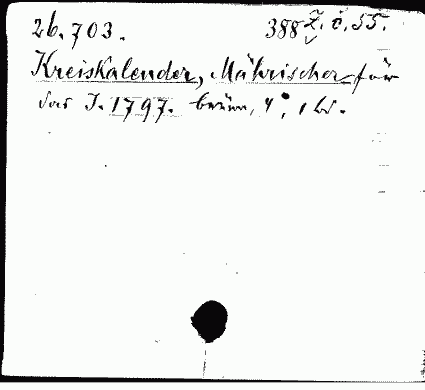 26.703. 388 Z. č. 55.
Kreiskalender, Mährischer für
das J. 1797. Brünn, 4°, 1 Bd.